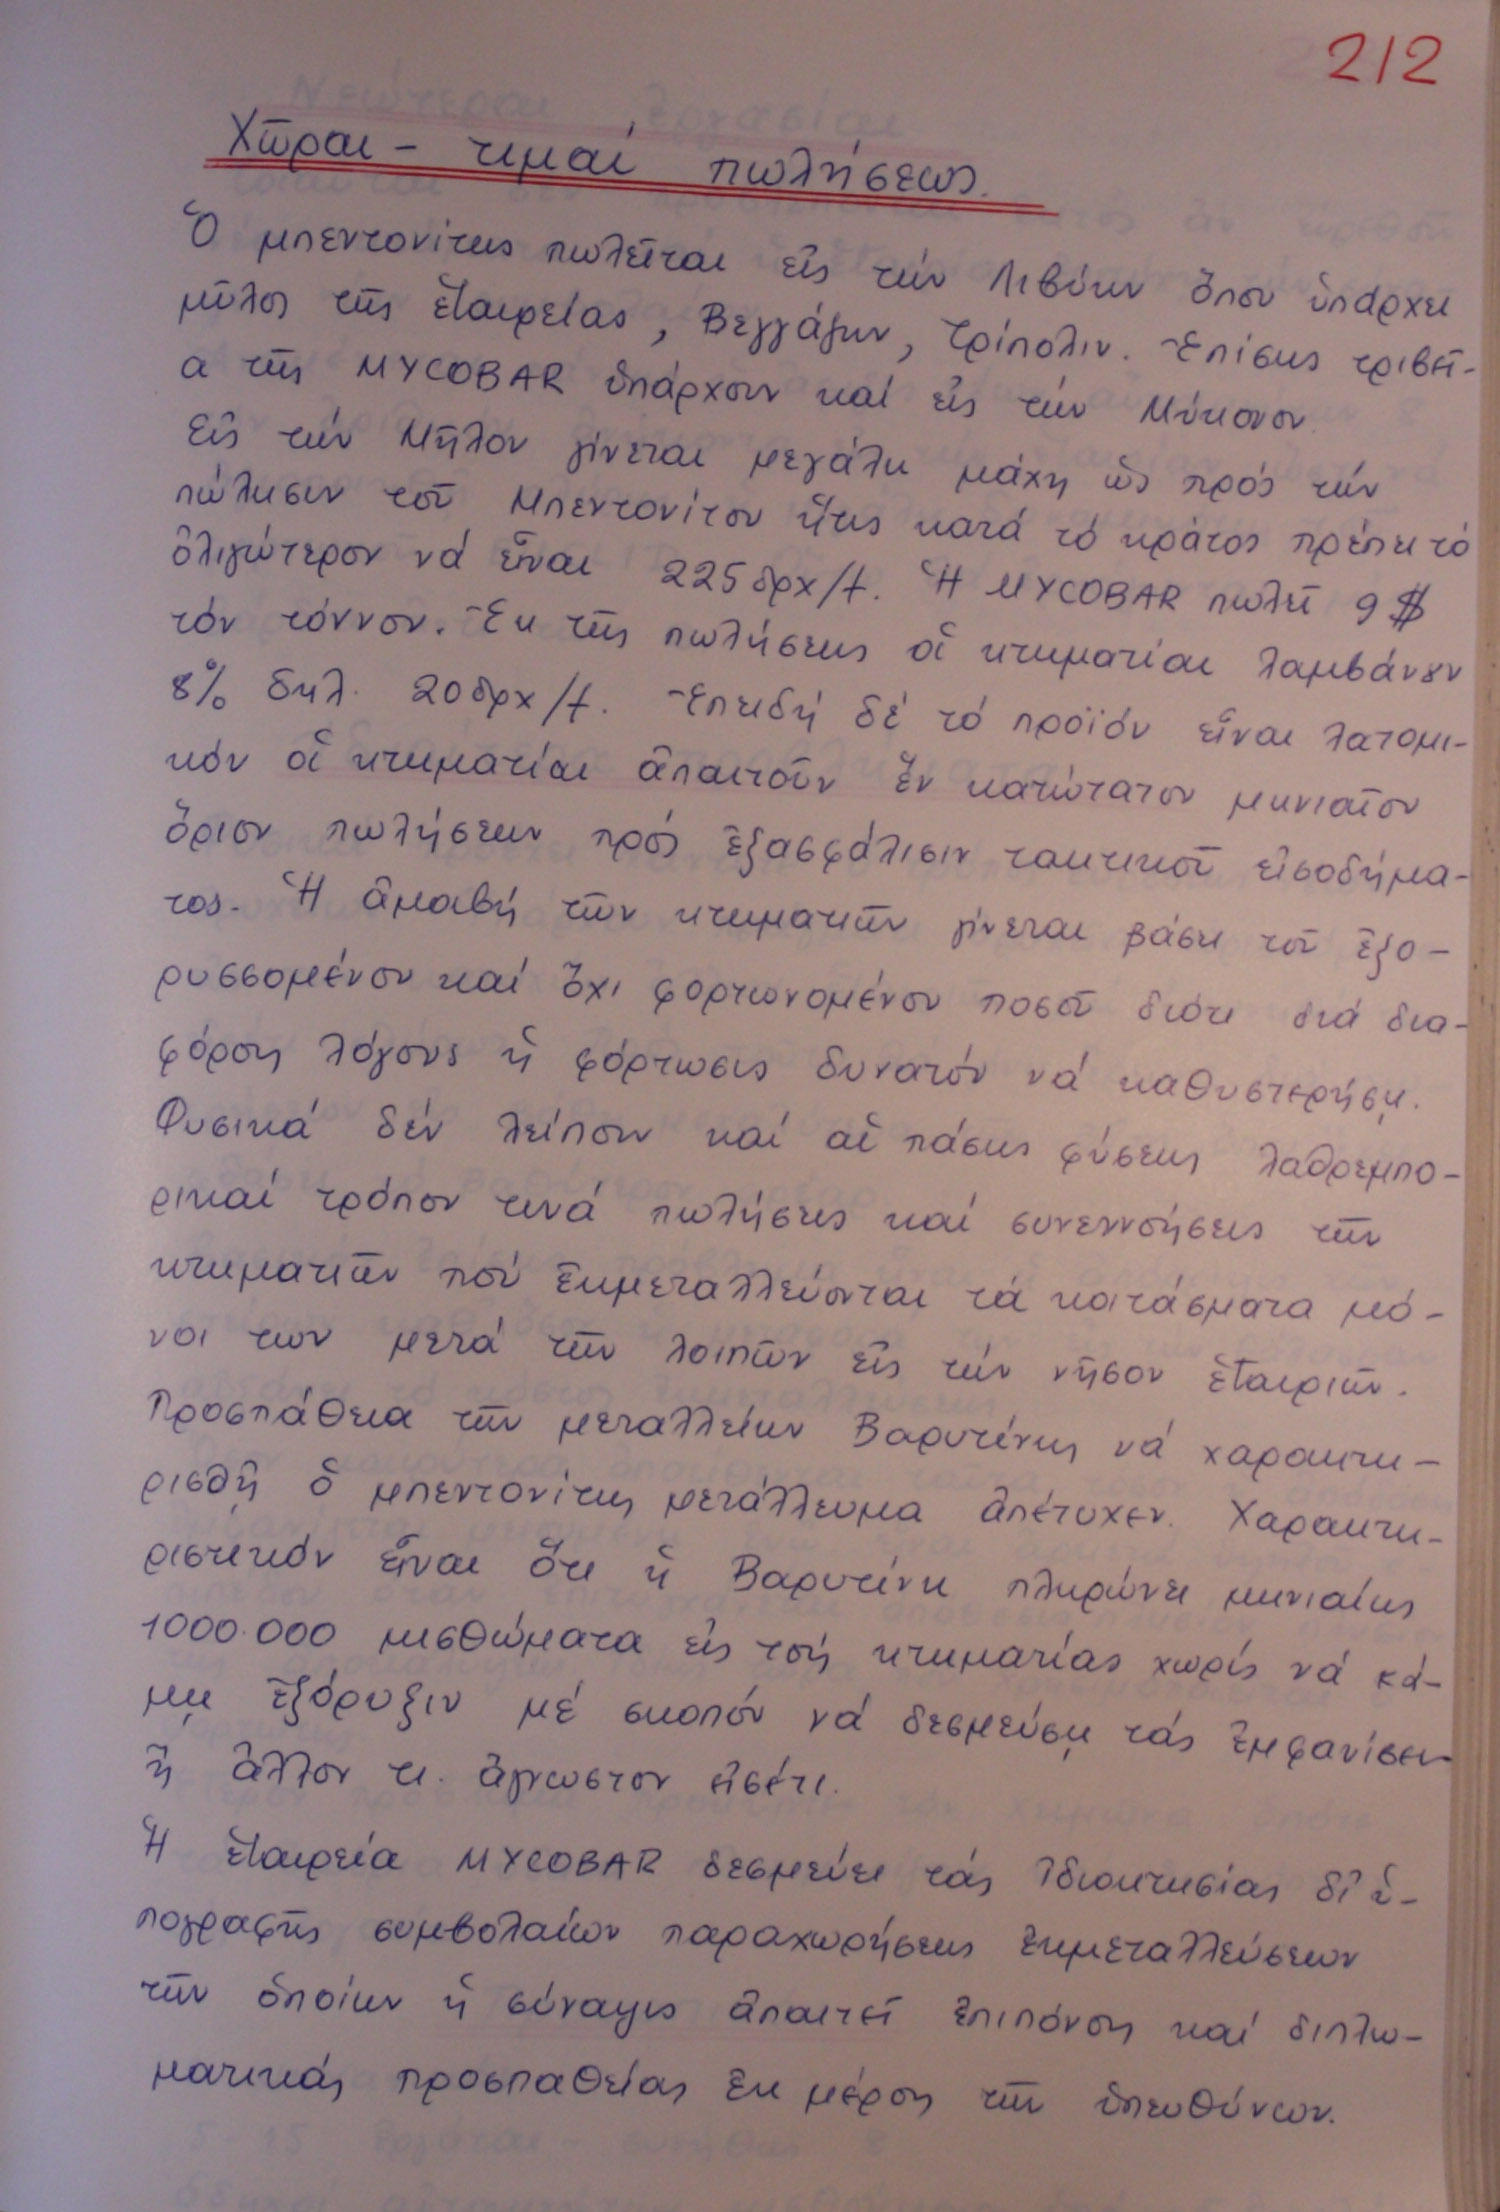 212
Χῶραι – τιμαί πωλήσεως.
Ὁ μπεντονίτης πωλεῖται εἰς τήν Λιβύην ὅπου ὑπάρχει
μῦλος τῆς ἑταιρείας, Βεγγάζην, Τρίπολιν. Ἐπίσης τριβεῖ-
α τῆς MYCOBAR ὑπάρχουν καί εἰς τήν Μύκονον.
Εἰς τήν Μῆλον γίνεται μεγάλη μάχη ὡς πρός τήν
πώλησιν τοῦ Μπεντονίτου ἥτις κατά τό κράτος πρέπει τό
ὀλιγώτερον νά εἶναι 225 δρχ/t. Ἡ MYCOBAR πωλεῖ 9 $
τόν τόννον. Ἐκ τῆς πωλήσεως οἱ κτηματίαι λαμβάνουν
8% δηλ. 20 δρχ/t. Ἐπειδή δέ τό προϊόν εἶναι λατομι-
κόν οἱ κτηματίαι ἀπαιτοῦν ἕν κατώτατον μηνιαῖον
ὅριον πωλήσεων πρός ἐξασφάλισιν τακτικοῦ εἰσοδήμα-
τος. Ἡ ἀμοιβή τῶν κτηματιῶν γίνεται βάσει τοῦ ἐξο-
ρυσσομένου καί ὄχι φορτωνομένου ποσοῦ διότι διά δια-
φόρους λόγους ἡ φόρτωσις δυνατόν νά καθυστερήσῃ.
Φυσικά δέν λείπουν καί αἱ πάσης φύσεως λαθρεμπο-
ρικαί τρόπον τινά πωλήσεις καί συνεννοήσεις τῶν
κτηματιῶν πού ἐκμεταλλεύονται τά κοιτάσματα μό-
νοι των μετά τῶν λοιπῶν εἰς τήν νῆσον ἑταιριῶν.
Προσπάθεια τῶν μεταλλείων Βαρυτίνης νά χαρακτη-
ρισθῇ ὁ μπεντονίτης μετάλλευμα ἀπέτυχεν. Χαρακτη-
ριστικόν εἶναι ὅτι ἡ Βαρυτίνη πληρώνει μηνιαίως
1000.000 μισθώματα εἰς τούς κτηματίας χωρίς νά κά-
μῃ ἐξόρυξιν μέ σκοπόν νά δεσμεύσῃ τάς ἐμφανίσεις
ἤ ἄλλον τι. ἄγνωστον εἰσέτι.
Ἡ ἑταιρεία MYCOBAR δεσμεύει τάς ἰδιοκτησίας δι' ὑ-
πογραφῆς συμβολαίων παραχωρήσεως ἐκμεταλλεύσεων
τῶν ὁποίων ἡ σύναψις ἀπαιτεῖ ἐπιπόνους καί διπλω-
ματικάς προσπαθείας ἐκ μέρους τῶν ὑπευθύνων.